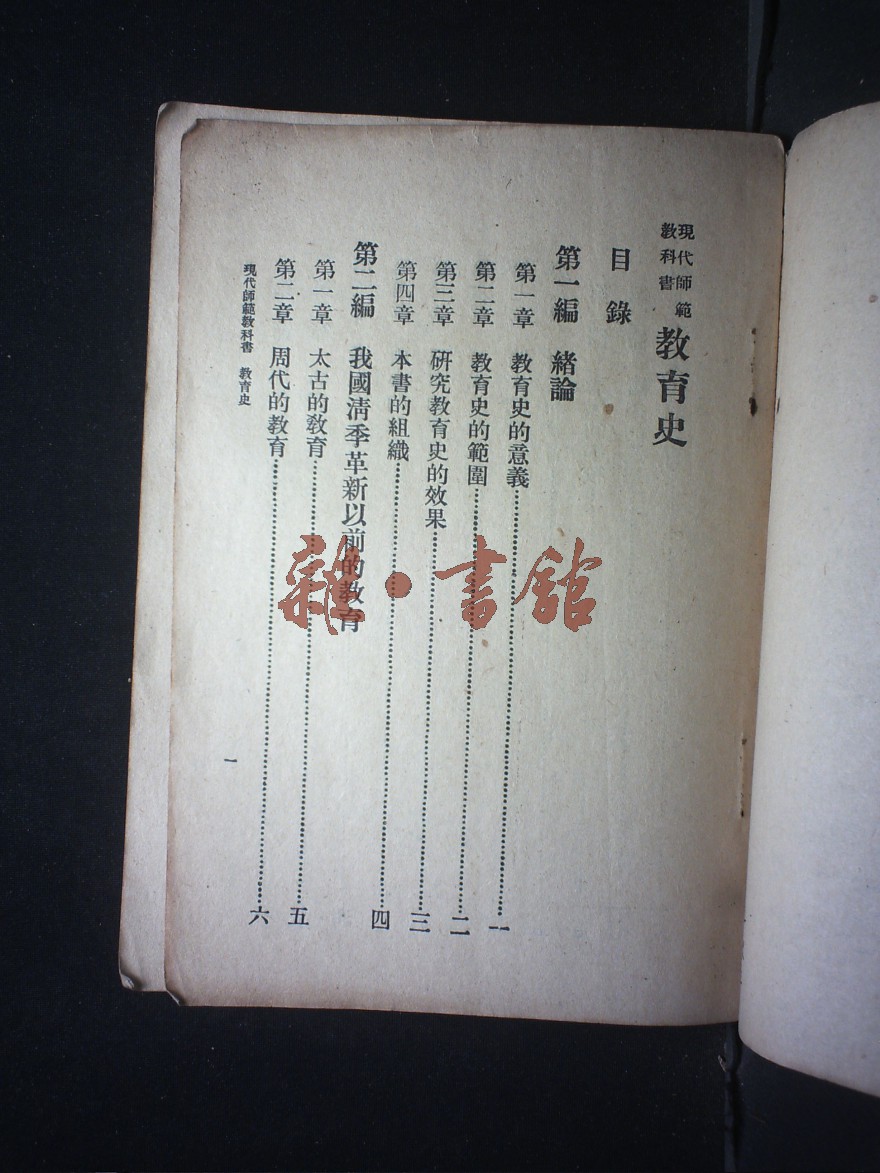 現代師範
教科書
教育史
目錄
第一編 緒論
第一章 教育史的意義……一
第二章 教育史的範圍……二
第三章 研究教育史的效果……三
第四章 本書的組織……四
第二編 我國清季革新以前的教育
第一章 太古的教育……五
第二章 周代的教育……六
現代師範教科書 教育史
一
雜·書館